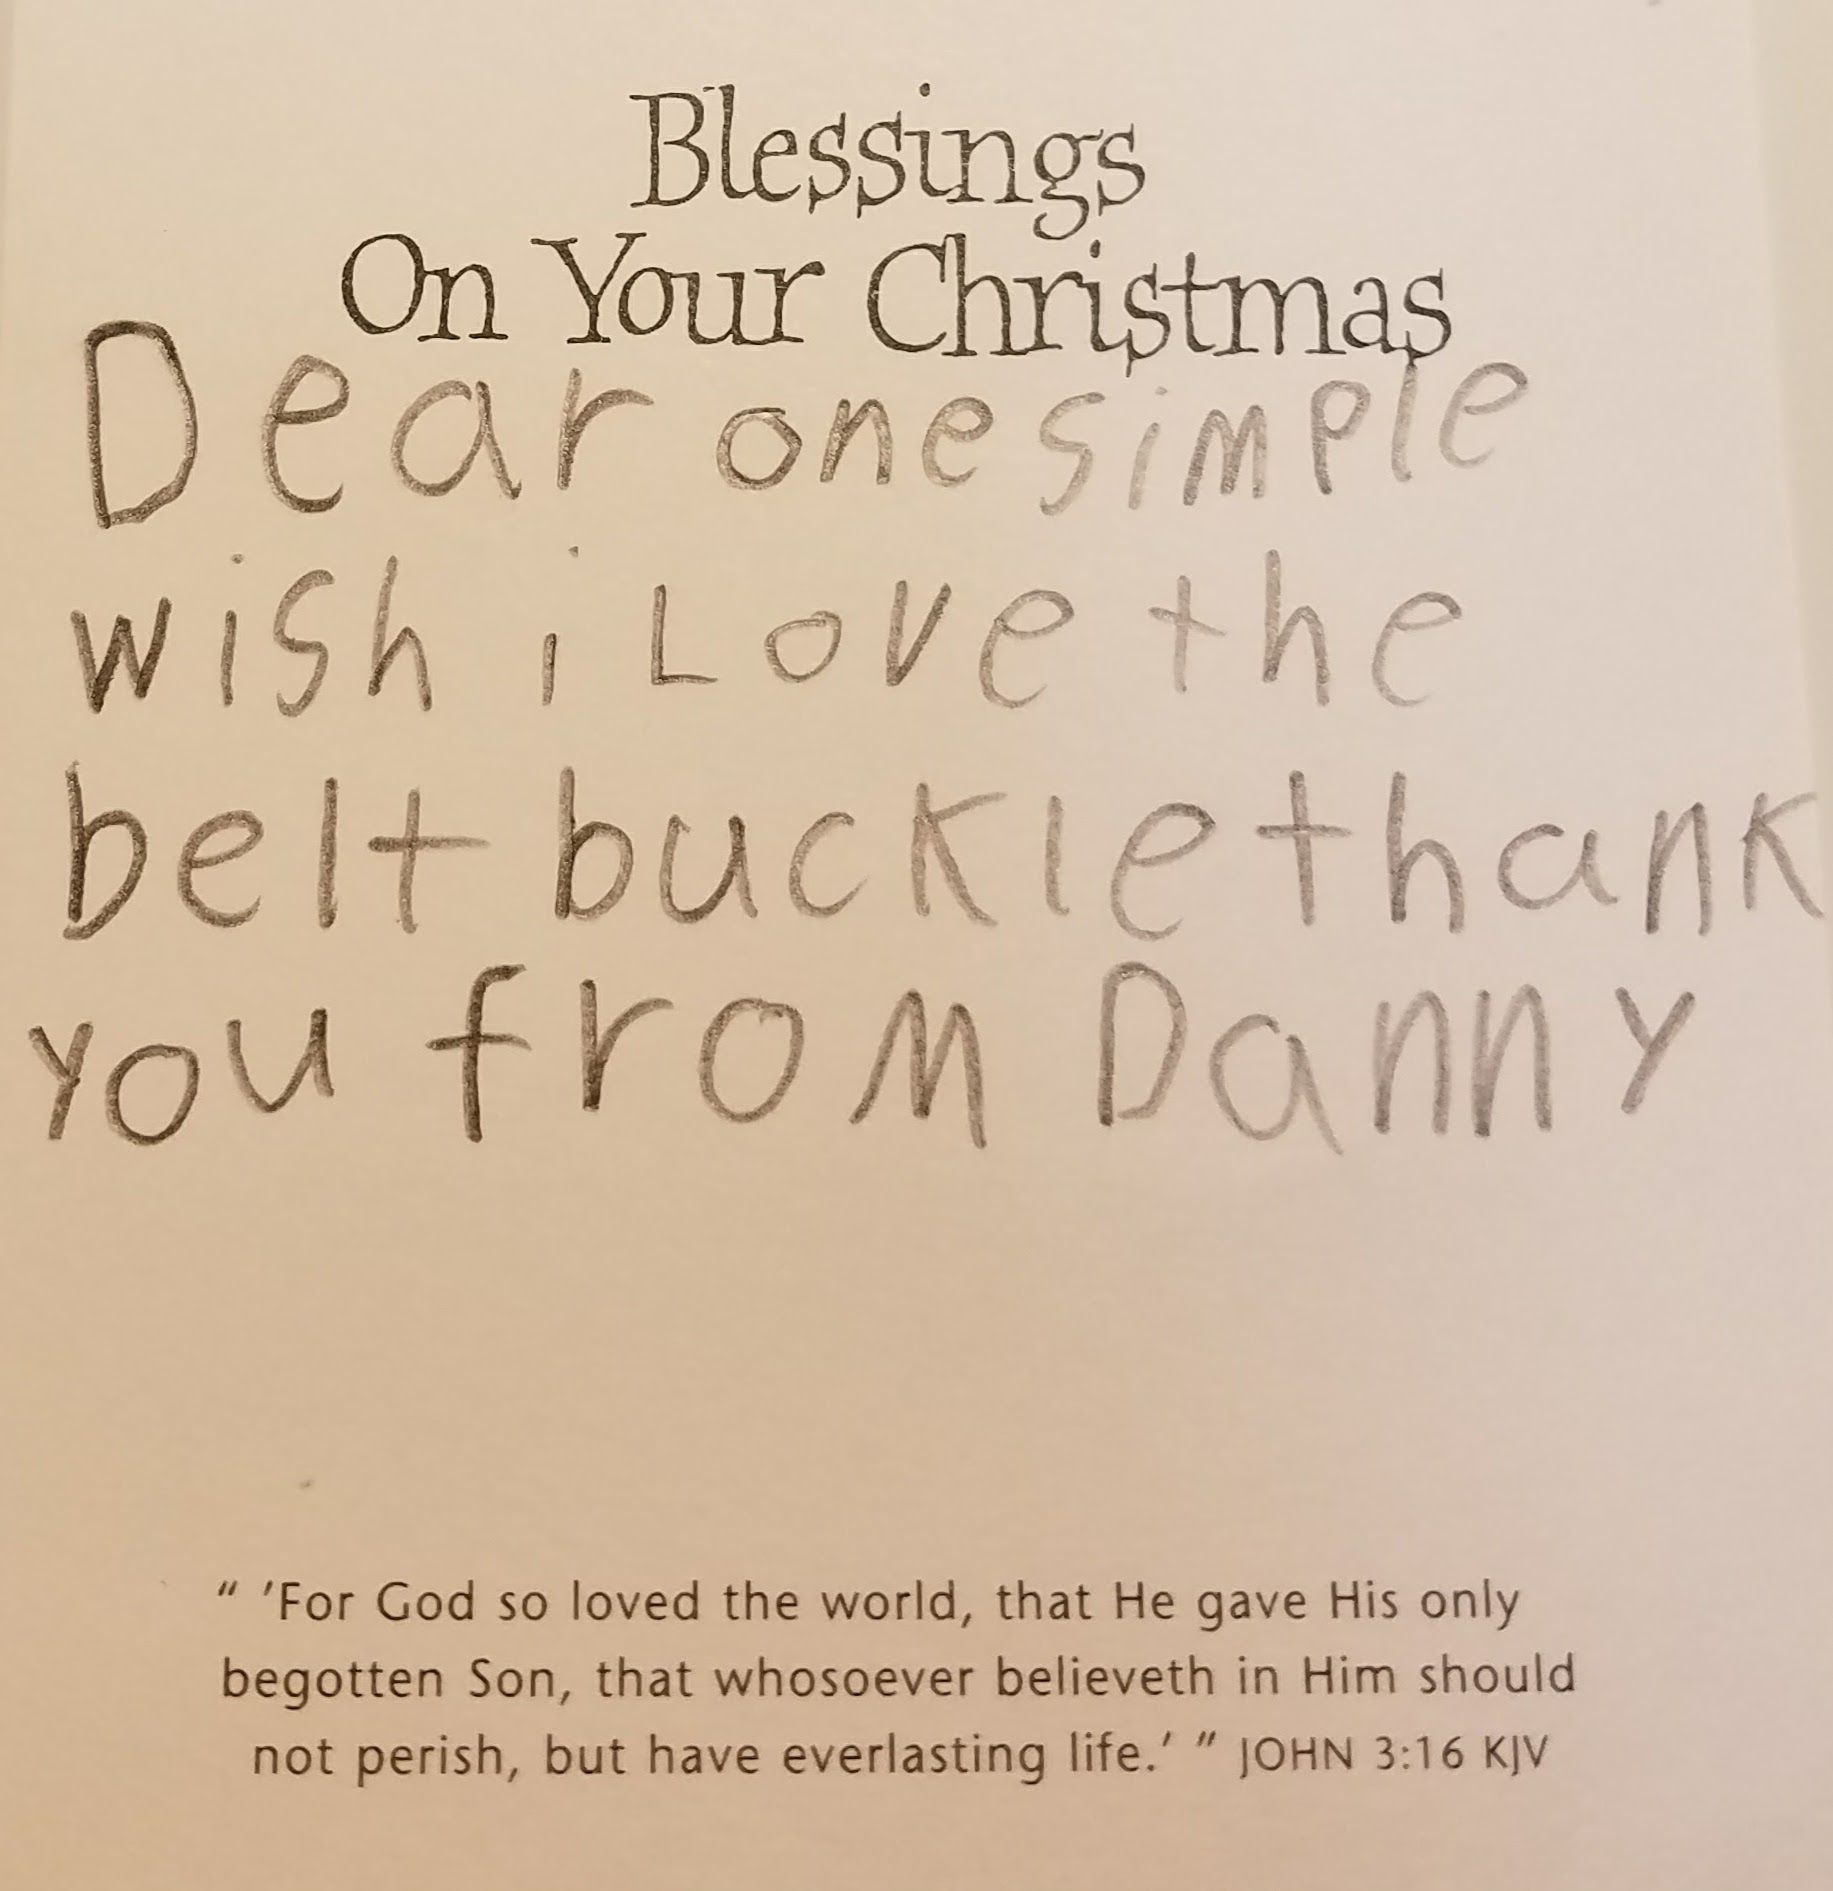 Blessings
On Your Christmas
Dear one simple
wish i Love the
belt buckle thank
you from Danny
" 'For God so loved the world, that He gave His only
begotten Son, that whosoever believeth in Him should
not perish, but have everlasting life.' " JOHN 3:16 KJV